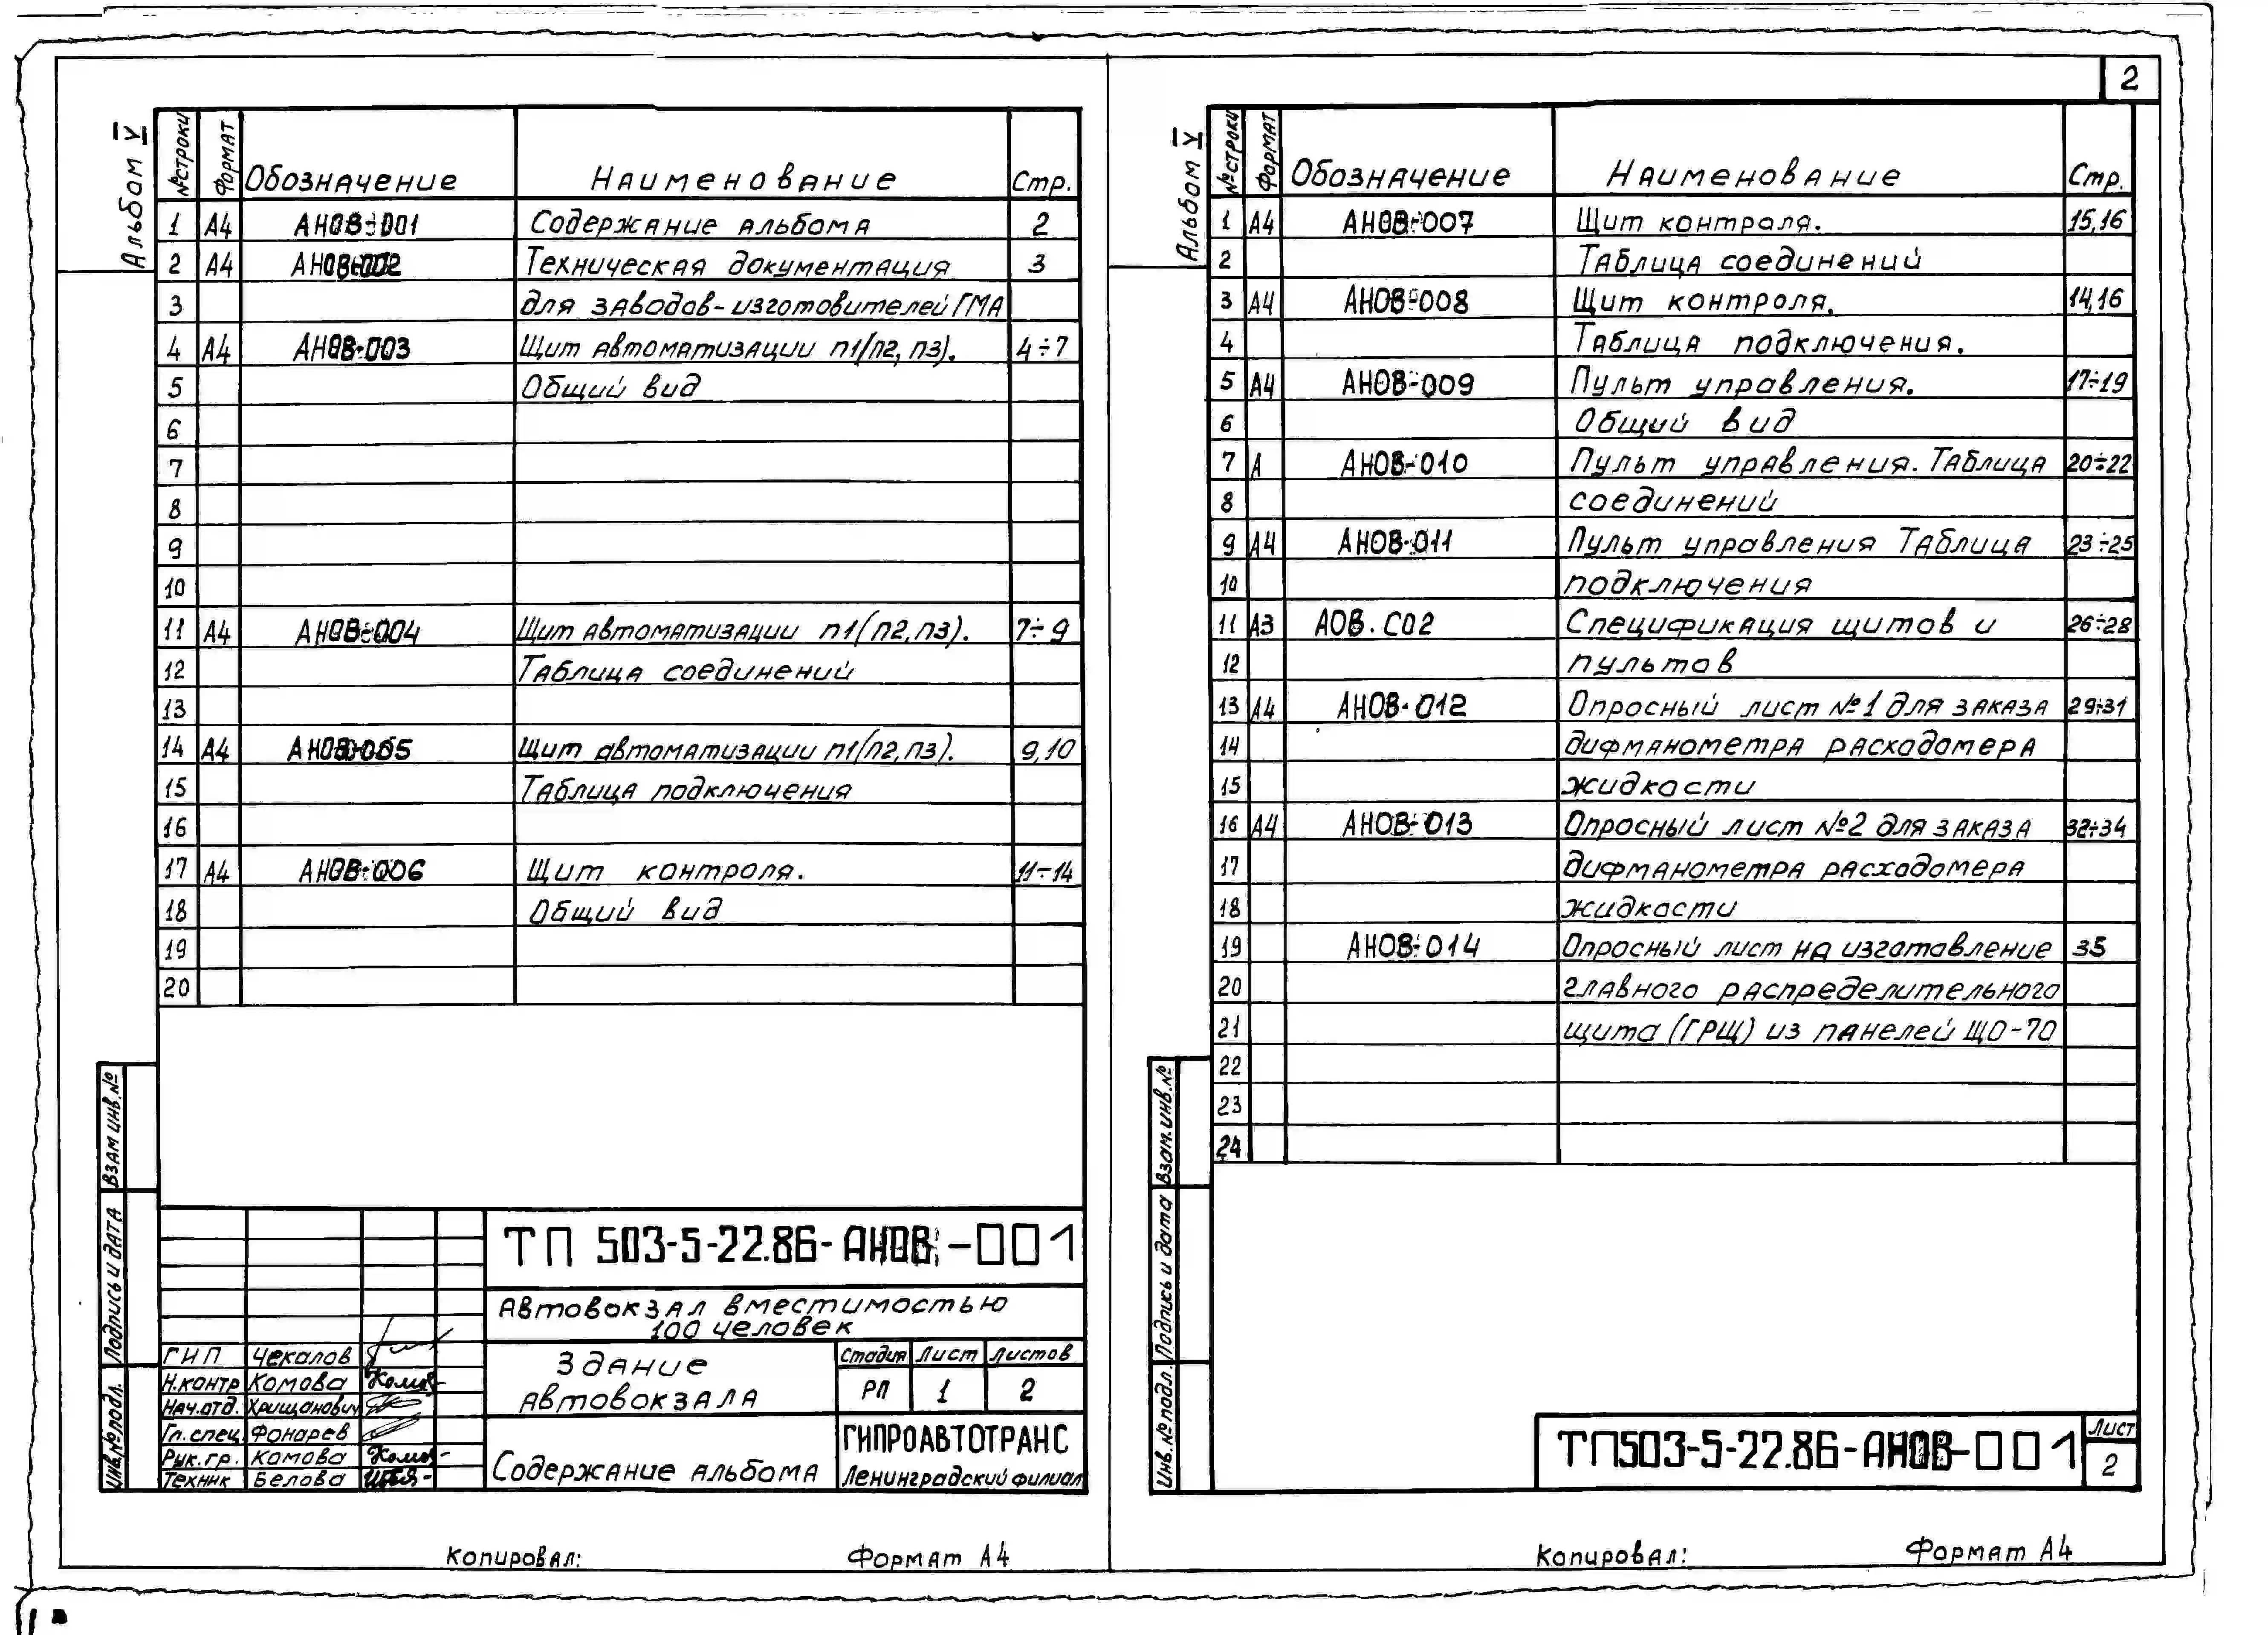 2
Альбом V
№ строки Формат Обозначение Наименование Стр.
1 А4 АНОВ-001 Содержание альбома 2
2 А4 АНОВ-002 Техническая документация 3
3 для заводов-изготовителей ГМА
4 А4 АНОВ-003 Щит автоматизации П1(П2, П3). 4÷7
5 Общий вид
6
7
8
9
10
11 А4 АНОВ-004 Щит автоматизации П1(П2, П3). 7÷9
12 Таблица соединений
13
14 А4 АНОВ-005 Щит автоматизации П1(П2, П3). 9,10
15 Таблица подключения
16
17 А4 АНОВ-006 Щит контроля. 11÷14
18 Общий вид
19
20
Взам инв.№
Подпись и дата
Инв.№ подл.
ТП 503-5-22.86-АНОВ-001
Автовокзал вместимостью
100 человек
ГИП Чекалов
Н.контр Комова
Нач.отд. Хрищанович
Гл.спец. Фонарев
Рук.гр. Комова
Техник Белова
Здание
автовокзала
Стадия Лист Листов
РП 1 2
Содержание альбома
ГИПРОАВТОТРАНС
Ленинградский филиал
Копировал: Формат А4
Альбом V
№ строки Формат Обозначение Наименование Стр.
1 А4 АНОВ-007 Щит контроля. 15,16
2 Таблица соединений
3 А4 АНОВ-008 Щит контроля. 14,16
4 Таблица подключения.
5 А4 АНОВ-009 Пульт управления. 17÷19
6 Общий вид
7 А АНОВ-010 Пульт управления. Таблица 20÷22
8 соединений
9 А4 АНОВ-011 Пульт управления Таблица 23÷25
10 подключения
11 А3 АОВ.С02 Спецификация щитов и 26÷28
12 пультов
13 А4 АНОВ-012 Опросный лист №1 для заказа 29÷31
14 дифманометра расходомера
15 жидкости
16 А4 АНОВ-013 Опросный лист №2 для заказа 32÷34
17 дифманометра расходомера
18 жидкости
19 АНОВ-014 Опросный лист на изготовление 35
20 главного распределительного
21 щита (ГРЩ) из панелей ЩО-70
22
23
24
Взам.инв.№
Подпись и дата
Инв.№ подл.
ТП503-5-22.86-АНОВ-001
Лист
2
Копировал: Формат А4